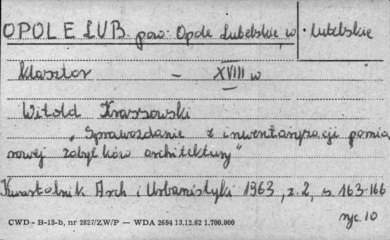 OPOLE LUB. pow: Opole Lubelskie, w. lubelskie
klasztor - XVIII w
Witold Krassowski
„Sprawozdanie z inwentaryzacji pomia
rowej zabytków architektury"
Kwartalnik Arch i Urbanistyki 1963, z. 2, s. 163-166
ryc. 10
CWD - B-15-b, nr 2827/ZW/P — WDA 2694 13.12.62 1.700.000